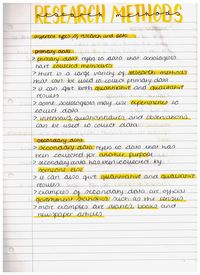 RESEARCH METHODS
different types of research and data
primary data
> primary data refers to data that sociologists
have collected themselves
> there is a large variety of research methods
that can be used to collect primary data
> it can give both quantitative and qualitative
results
> some sociologists may use experiments to
collect data
> interviews, questionnaires and observations
can be used to collect data
secondary data
> secondary data refers to data that has
been collected for another purpose
> secondary data has been collected by
someone else
> it can also give quantitative and qualitative
results
> examples of secondary data are official
government statistics such as the census
> more examples are diaries, books and
newspaper articles